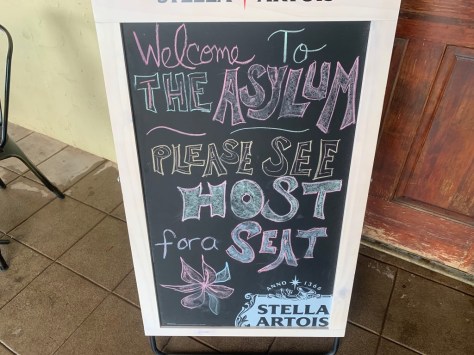 STELLA ARTOIS
Welcome To
THE ASYLUM
PLEASE SEE
HOST
for a SEAT
ANNO 1366
STELLA
ARTOIS